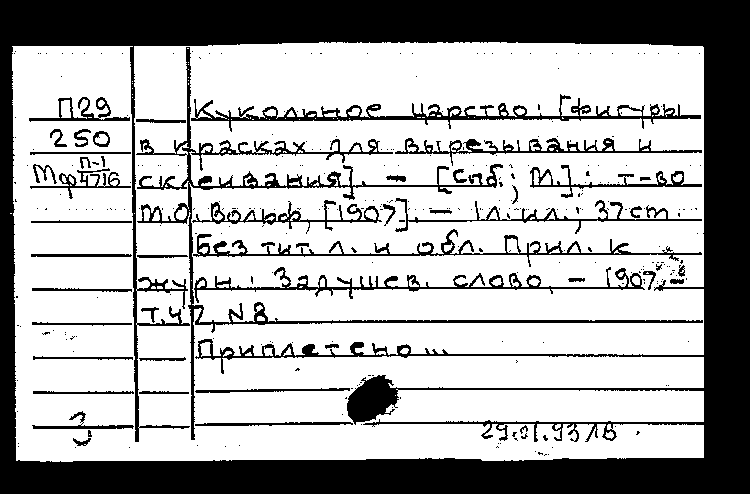 П29 Кукольное царство: [фигуры
250 в красках для вырезывания и
Мф П-1/4716 склеивания]. — [Спб.; М.]: т-во
М.О. Вольф, [1907]. — 1л. ил.; 37 cm.
Без тит. л. и обл. Прил. к
журн.: Задушев. слово, — 1907, –
Т.47, N8.
Приплетено...
З 29.01.93